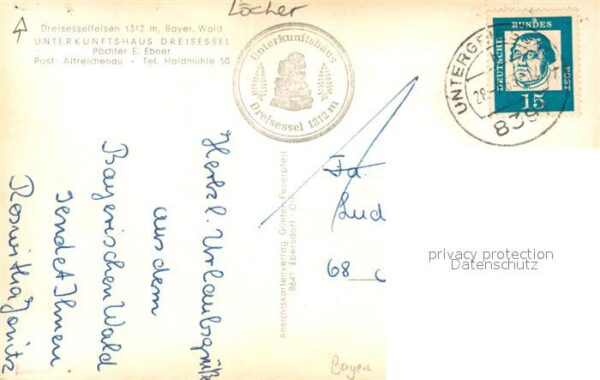 Löcher
Dreisesselfelsen 1312 m, Bayer. Wald
UNTERKUNFTSHAUS DREISESSEL
Pächter E. Eber
Post: Altreichenau - Tel. Haidmühle 50
Unterkunftshaus
Dreisessel 1312 m
DEUTSCHE BUNDESPOST
15
UNTERG
28
839
Herzl. Urlaubsgrüße
aus dem
Bayerischen Wald
sendet Ihnen
Roswitha
Ansichtskartenverlag Günter Feuerpfeil
8641 Ebersdorf
Fa
Lud
68
privacy protection
Datenschutz
Bayer